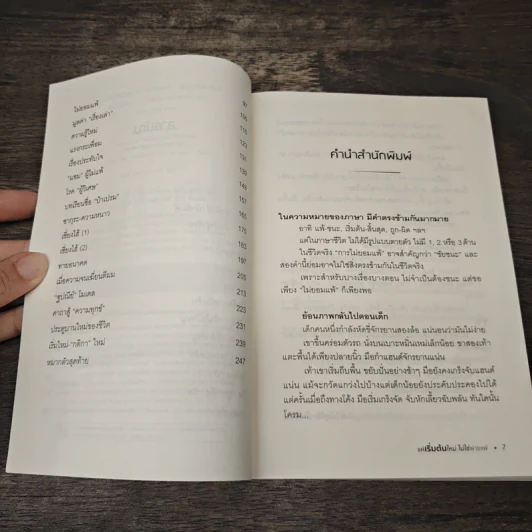 ไม่ยอมแพ้ 97
มูลค่า "เรื่องเล่า" 106
ความรู้ใหม่ 115
แรงกระเพื่อม 123
เรื่องประทับใจ 131
"แซม" ผู้ไม่แพ้ 141
โรค "ผู้วิเศษ" 149
บทเรียนชื่อ "ป๋าเปรม" 157
ซากุระ-ความหนาว 165
เซี่ยงไฮ้ (1) 175
เซี่ยงไฮ้ (2) 183
ทายอนาคต 197
เมื่อความจนเฆี่ยนตีผม 205
"ฐปณีย์" โมเดล 213
คาถาสู้ "ความทุกข์" 225
ประตูบานใหม่ของชีวิต 231
เริ่มใหม่-"กติกา" ใหม่ 239
หมากตัวสุดท้าย 247
คำนำสำนักพิมพ์
ในความหมายของภาษา มีคำตรงข้ามกันมากมาย
อาทิ แพ้-ชนะ, เริ่มต้น-สิ้นสุด, ถูก-ผิด ฯลฯ
แต่ในภาษาชีวิต ไม่ได้มีรูปแบบตายตัว ไม่มี 1, 2 หรือ 3 ด้าน
ในชีวิตจริง "การไม่ยอมแพ้" อาจสำคัญกว่า "ชัยชนะ" และ
สองคำนี้ย่อมอาจไม่ใช่สิ่งตรงข้ามกันในชีวิตจริง
เพราะสำหรับบางเรื่องบางตอน ไม่จำเป็นต้องชนะ แต่ขอ
เพียง "ไม่ยอมแพ้" ก็เพียงพอ
ย้อนภาพกลับไปตอนเด็ก
เด็กคนหนึ่งกำลังหัดขี่จักรยานสองล้อ แน่นอนว่ามันไม่ง่าย
เขาขึ้นคร่อมตัวรถ นั่งบนเบาะหมิ่นเหม่เล็กน้อย ขาสองเท้า
แตะพื้นได้เพียงปลายนิ้ว มือกำแฮนด์จักรยานแน่น
เท้าเขาเริ่มถีบพื้น ขยับปั่นอย่างช้าๆ มือยังคงเกร็งจับแฮนด์
แน่น แม้จะกวัดแกว่งไปบ้างแต่เด็กน้อยยังประคับประคองไปได้
แต่ครั้นเมื่อถึงทางโค้ง มือเริ่มเกร็งจัด จับหักเลี้ยวฉับพลัน ทันใดนั้น
โครม...
แค่เริ่มต้นใหม่ ไม่ใช่พ่ายแพ้ • 7